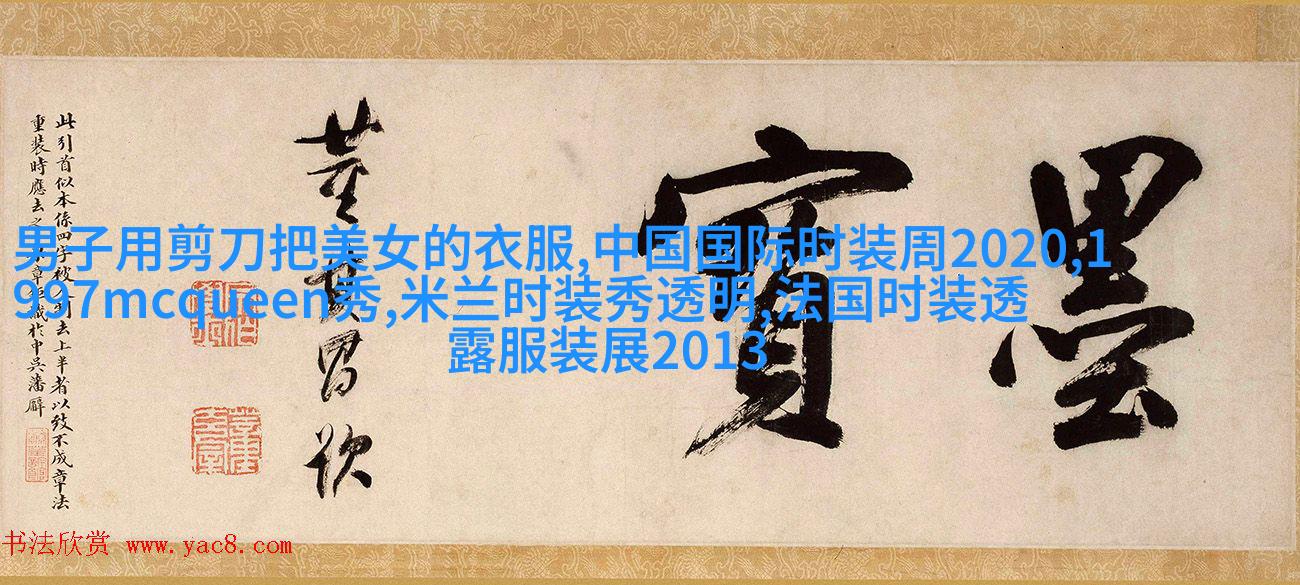 墨寶
董其昌跋
此引首似本係四字被
去上半者以致不成章法
重裝時應去之
章
識於中吳
男子用剪刀把美女的衣服,中国国际时装周2020,1
997mcqueen秀,米兰时装秀透明,法国时装透
露服装展2013
书法欣赏 www.yac8.com